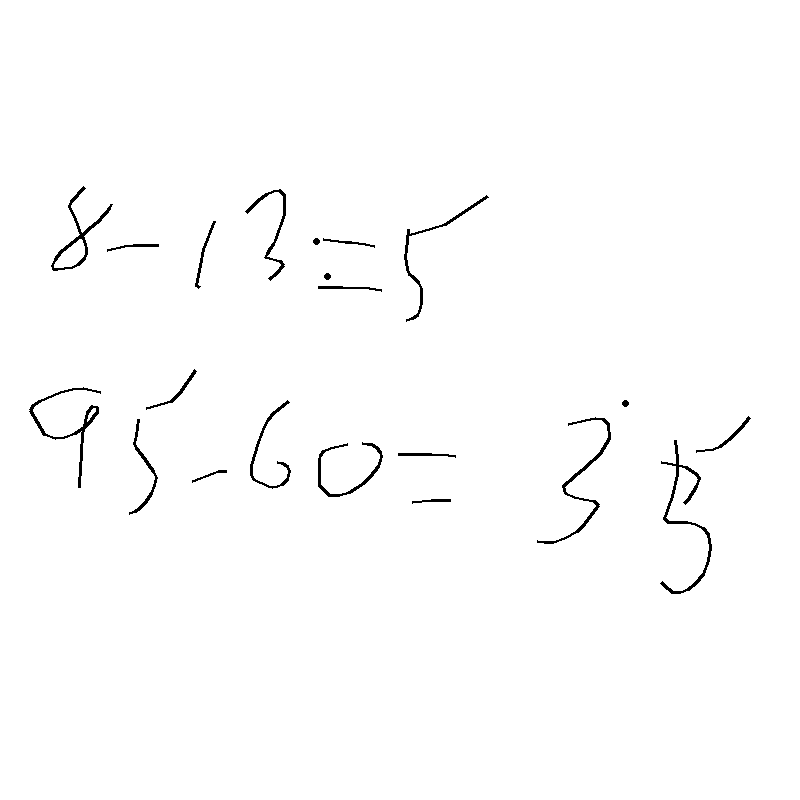 8-13=5
95-60=35